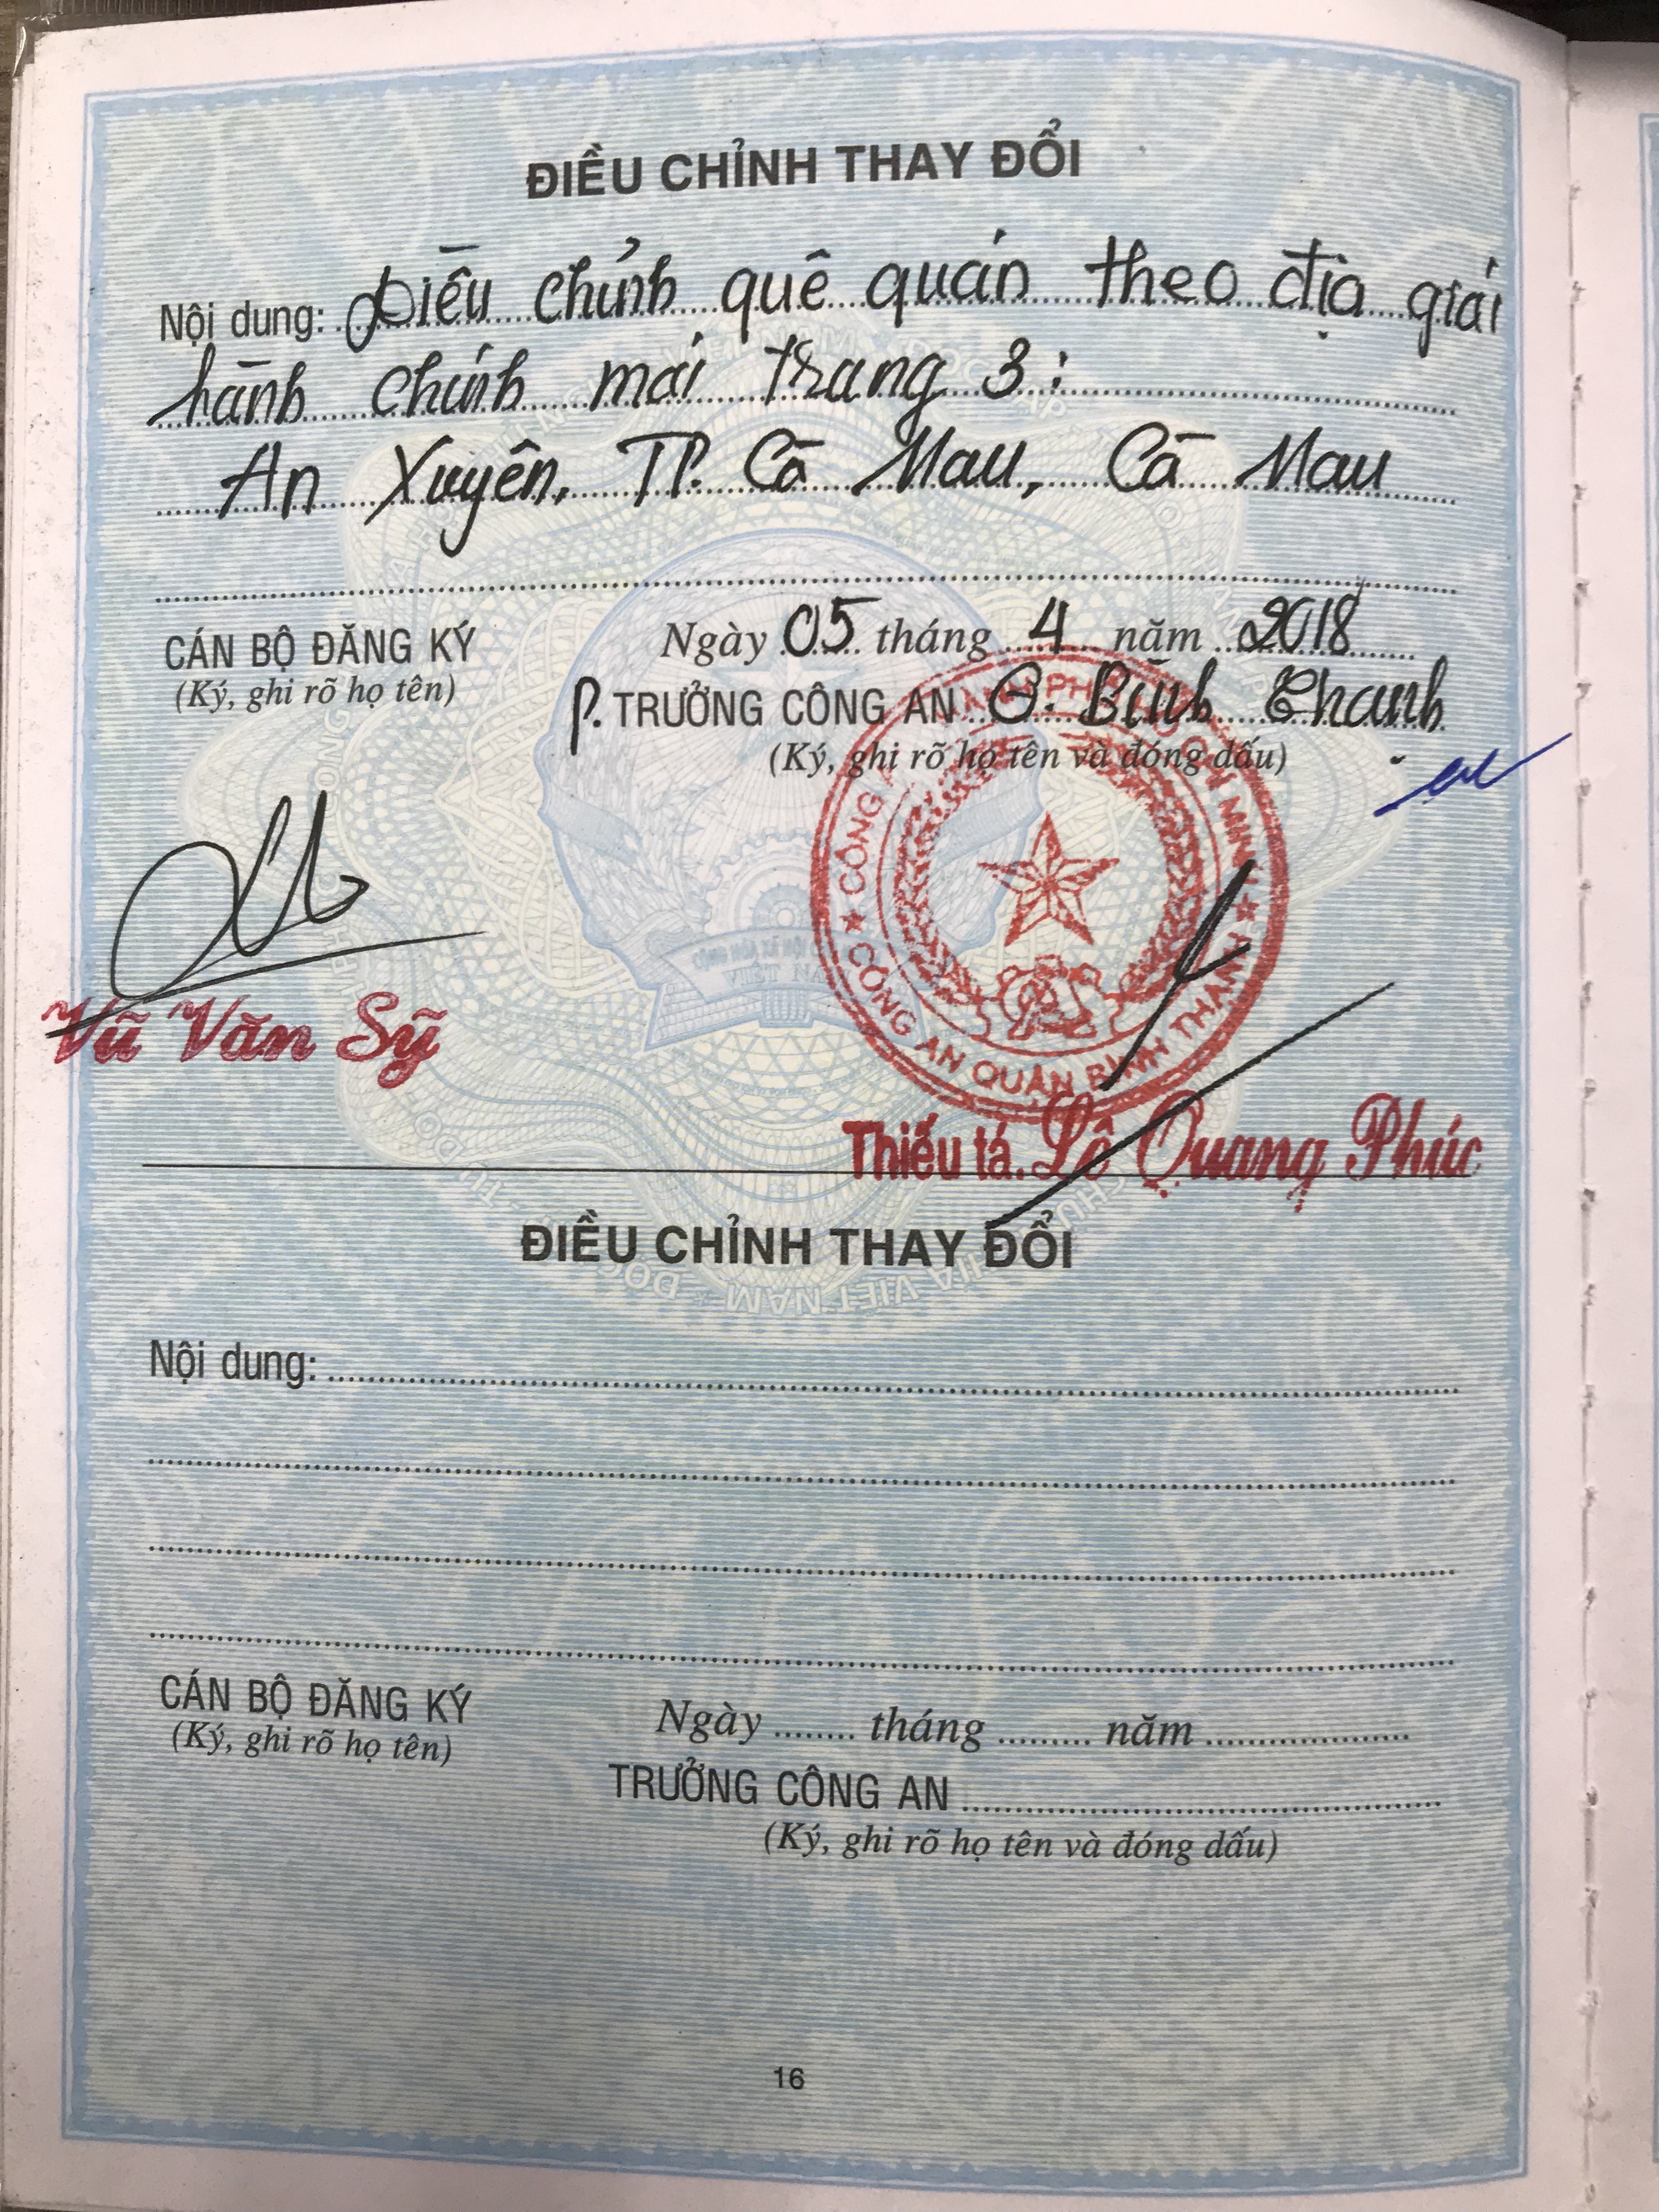 ĐIỀU CHỈNH THAY ĐỔI
Nội dung: Điều chỉnh quê quán theo địa giới
hành chính mới trang 3:
An Xuyên, TP. Cà Mau, Cà Mau
CÁN BỘ ĐĂNG KÝ
(Ký, ghi rõ họ tên)
Ngày 05 tháng 4 năm 2018
P. TRƯỞNG CÔNG AN Q. Bình Thạnh
(Ký, ghi rõ họ tên và đóng dấu)
CÔNG AN QUẬN BÌNH THẠNH
Vũ Văn Sỹ
Thiếu tá. Lê Quang Phúc
ĐIỀU CHỈNH THAY ĐỔI
Nội dung:
CÁN BỘ ĐĂNG KÝ
(Ký, ghi rõ họ tên)
Ngày ........ tháng ......... năm ....................
TRƯỞNG CÔNG AN
(Ký, ghi rõ họ tên và đóng dấu)
16